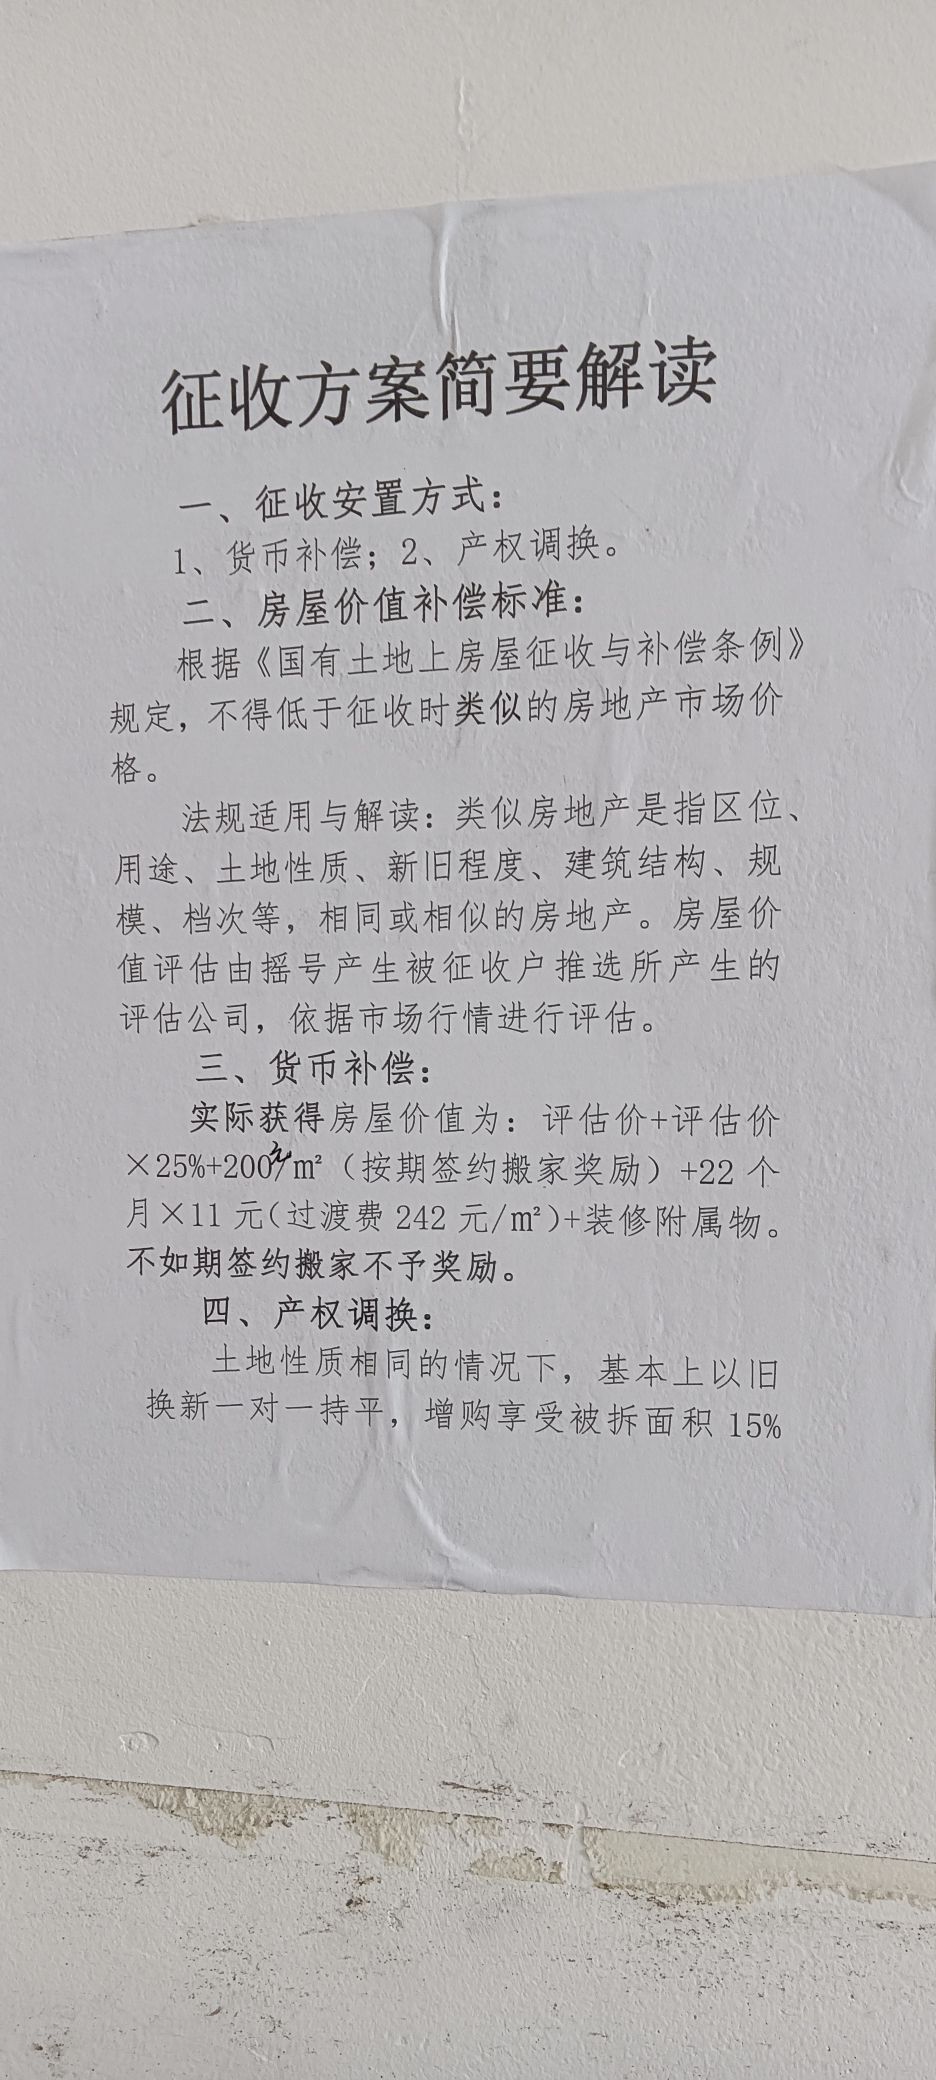 征收方案简要解读
一、征收安置方式：
1、货币补偿；2、产权调换。
二、房屋价值补偿标准：
根据《国有土地上房屋征收与补偿条例》
规定，不得低于征收时类似的房地产市场价
格。
法规适用与解读：类似房地产是指区位、
用途、土地性质、新旧程度、建筑结构、规
模、档次等，相同或相似的房地产。房屋价
值评估由摇号产生被征收户推选所产生的
评估公司，依据市场行情进行评估。
三、货币补偿：
实际获得房屋价值为：评估价+评估价
×25%+200元/㎡（按期签约搬家奖励）+22个
月×11元(过渡费242元/㎡)+装修附属物。
不如期签约搬家不予奖励。
四、产权调换：
土地性质相同的情况下，基本上以旧
换新一对一持平，增购享受被拆面积15%